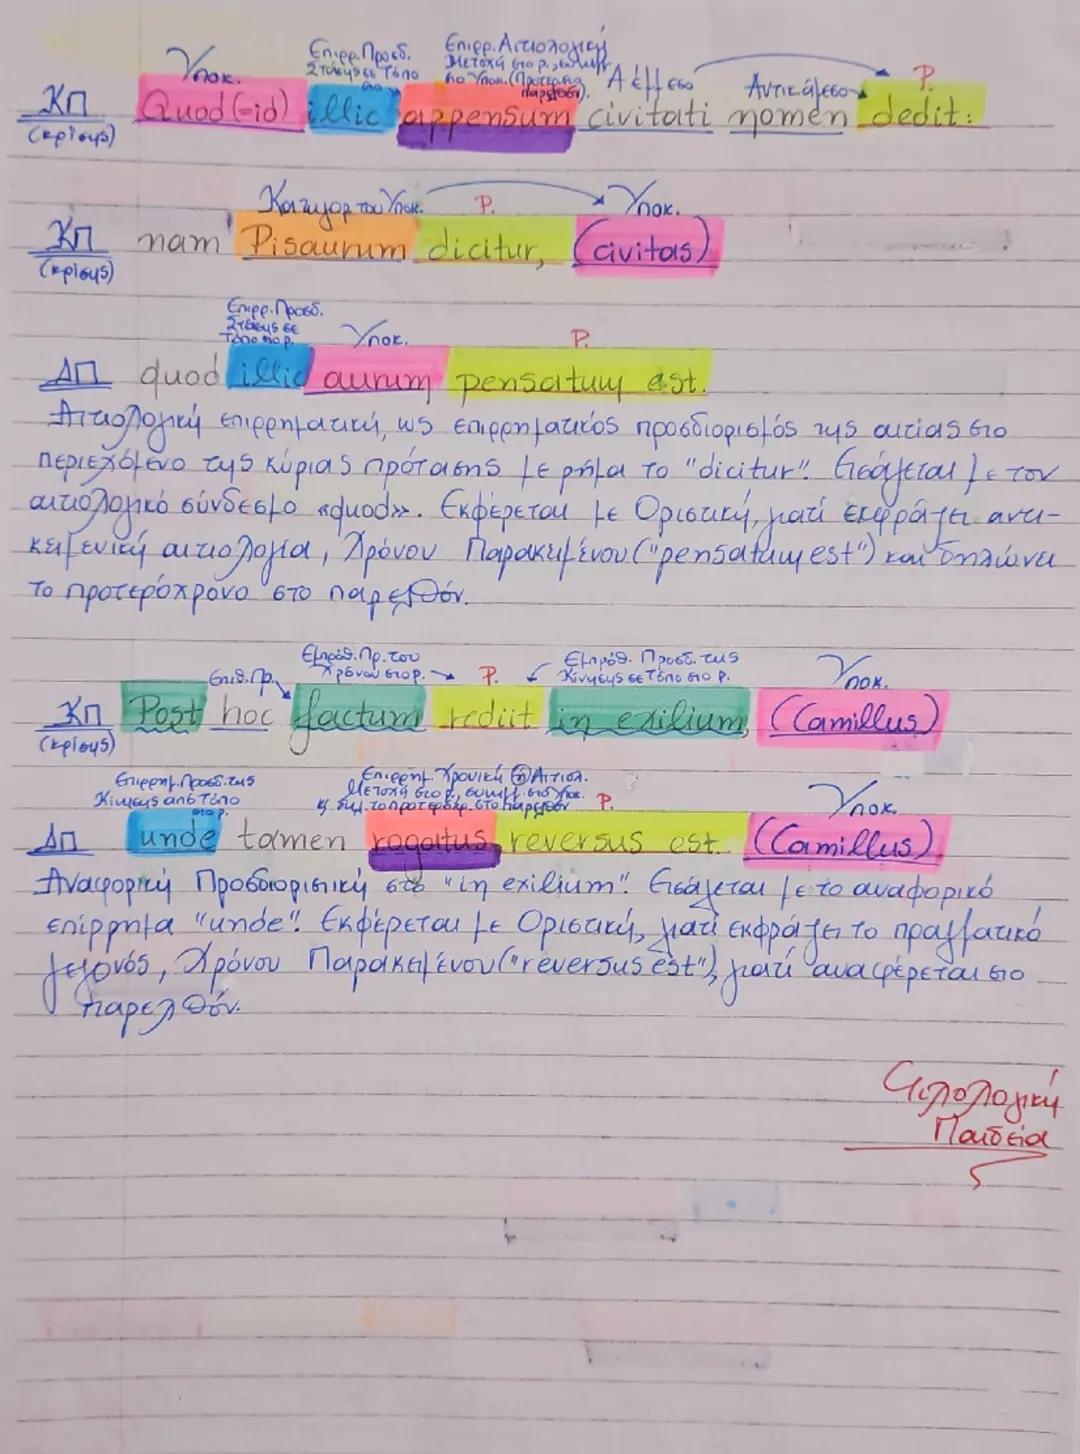 Υποκ.
Επιρρ. Προσδ.
Στάσης σε Τόπο
στο ρ.
Επιρρ. Αιτιολογική
Μετοχή στο ρ., συνημμ.
στο Υποκ. (Προτερ. στο
παρελθόν).
Α έμμεσο
Αντικ. άμεσο
Ρ.
ΚΠ
(κρίσης)
Quod (=id) illic appensum civitati nomen dedit:
Κατηγορ. του Υποκ.
Ρ.
Υποκ.
ΚΠ
(κρίσης)
nam Pisaurum dicitur, (civitas)
Επιρρ. Προσδ.
Στάσης σε
Τόπο στο ρ.
Υποκ.
Ρ.
ΔΠ quod illic aurum pensatum est.
Αιτιολογική επιρρηματική, ως επιρρηματικός προσδιορισμός της αιτίας στο
περιεχόμενο της κύριας πρότασης με ρήμα το "dicitur". Εισάγεται με τον
αιτιολογικό σύνδεσμο «quod». Εκφέρεται με Οριστική, γιατί εκφράζει αντι-
κειμενική αιτιολογία, Χρόνου Παρακειμένου ("pensatum est") και δηλώνει
το προτερόχρονο στο παρελθόν.
Επιθ. Πρ.
Εμπρόθ. Πρ. του
Χρόνου στο ρ.
Ρ.
Εμπρόθ. Προσδ. της
Κίνησης σε Τόπο στο ρ.
Υποκ.
ΚΠ
(κρίσης)
Post hoc factum rediit in exilium, (Camillus)
Επιρρημ. Προσδ. της
Κίνησης από Τόπο
στο ρ.
Επιρρημ. Χρονική ή Αιτιολ.
Μετοχή στο ρ., συνημμ. στο Υποκ.
κ' δηλ. το προτερόχρ. στο παρελθόν
Ρ.
Υποκ.
ΔΠ unde tamen rogatus reversus est. (Camillus)
Αναφορική Προσδιοριστική στο "in exilium". Εισάγεται με το αναφορικό
επίρρημα "unde". Εκφέρεται με Οριστική, γιατί εκφράζει το πραγματικό
γεγονός, Χρόνου Παρακειμένου ("reversus est"), γιατί αναφέρεται στο
παρελθόν.
Φιλολογική
Παιδεία